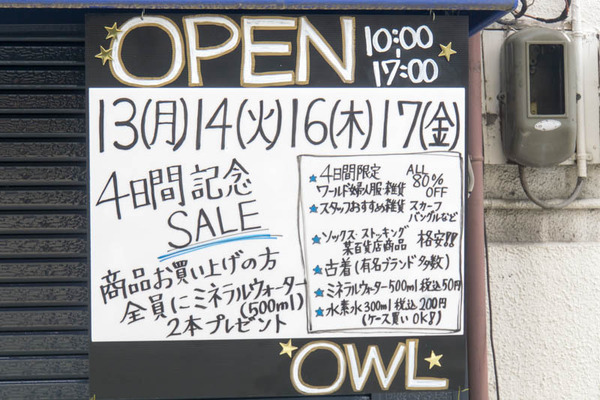 OPEN 10:00
17:00
13(月)14(火)16(木)17(金)
4日間記念
SALE
商品お買い上げの方
全員にミネラルウォーター
(500ml)
2本プレゼント
★4日間限定 ALL
ワールド婦人服・雑貨 80%
OFF
★スタッフおすすめ雑貨 スカーフ
バングルなど
★ソックス・ストッキング
某百貨店商品 格安!!
★古着(有名ブランド多数)
★ミネラルウォーター500ml税込50円
★水素水300ml税込200円
(ケース買いOK!!)
OWL